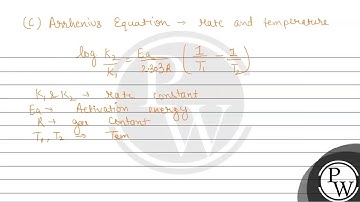 (C) Arrhenius Equation → rate and temperature
log K₂/K₁ = Ea/2.303R (1/T₁ - 1/T₂)
K₁ & K₂ → rate constant
Ea → Activation energy
R → gas Contant
T₁, T₂ → Tem
P
W